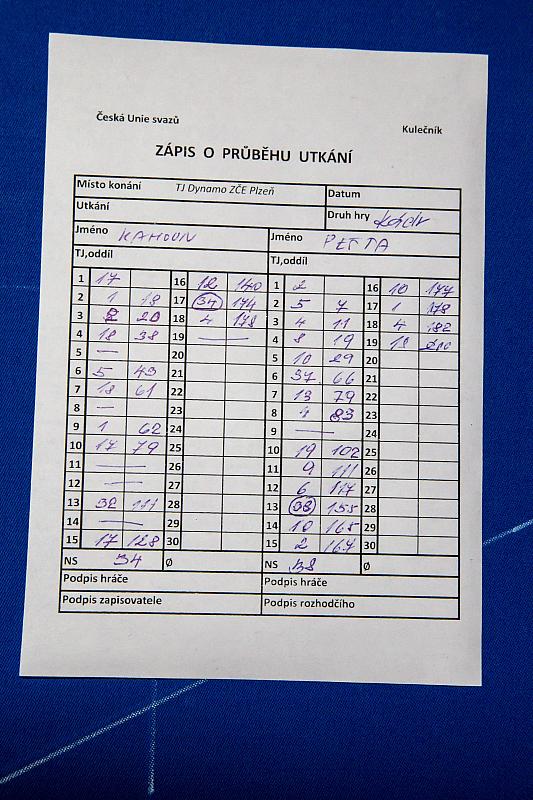 Česká Unie svazů
Kulečník
ZÁPIS O PRŮBĚHU UTKÁNÍ
Místo konání TJ Dynamo ZČE Plzeň Datum
Utkání Druh hry
Jméno KAHOUN Jméno PETTA
TJ,oddíl TJ,oddíl
1 17 16 12 140 1 2 16 10 177
2 1 18 17 34 174 2 5 7 17 1 178
3 2 20 18 4 178 3 4 11 18 4 182
4 18 38 19 — 4 8 19 19 18
5 — 20 5 10 29 20
6 5 43 21 6 37 66 21
7 18 61 22 7 13 79 22
8 — 23 8 4 83 23
9 1 62 24 9 — 24
10 17 79 25 10 19 102 25
11 — 26 11 9 111 26
12 — 27 12 6 117 27
13 32 111 28 13 38 155 28
14 — 29 14 10 165 29
15 17 128 30 15 2 167 30
NS 34 Ø NS 38 Ø
Podpis hráče Podpis hráče
Podpis zapisovatele Podpis rozhodčího